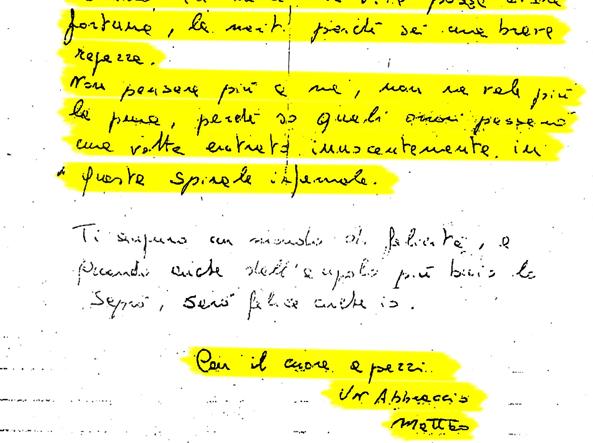 fortuna, la meriti perchè sei una brava
ragazza.
Non pensare più a me, non ne vale più
la pena, perchè so quali orrori passerò
una volta entrato innocentemente in
questa spirale infernale.
Ti auguro un mondo di felicità, e
quando anche dall'angolo più buio lo
saprò, sarò felice anche io.
Con il cuore a pezzi
Un Abbraccio
Matteo